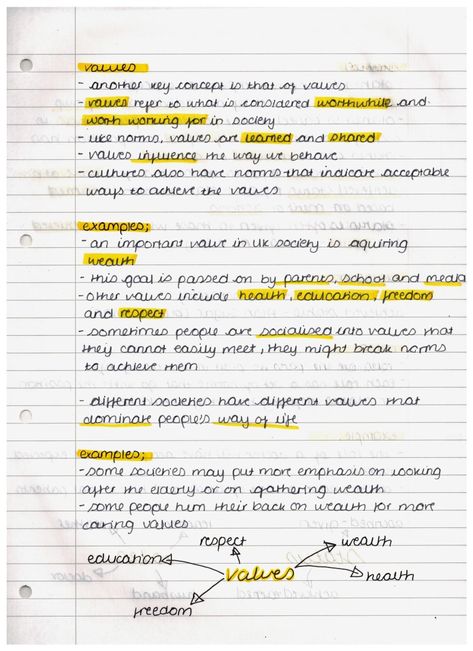 values
- another key concept is that of values
- values refer to what is considered worthwhile and
worth working for in society
- like norms, values are learned and shared
- values influence the way we behave
- cultures also have norms that indicate acceptable
ways to achieve the values
examples;
- an important value in UK society is aquiring
wealth
- this goal is passed on by parents, school and media
- other values include health, education, freedom
and respect
- sometimes people are socialised into values that
they cannot easily meet, they might break norms
to achieve them
- different societies have different values that
dominate people's way of life
examples;
- some societies may put more emphasis on looking
after the elderly or on gathering wealth
- some people turn their back on wealth for more
caring values
respect
wealth
education
values
health
freedom